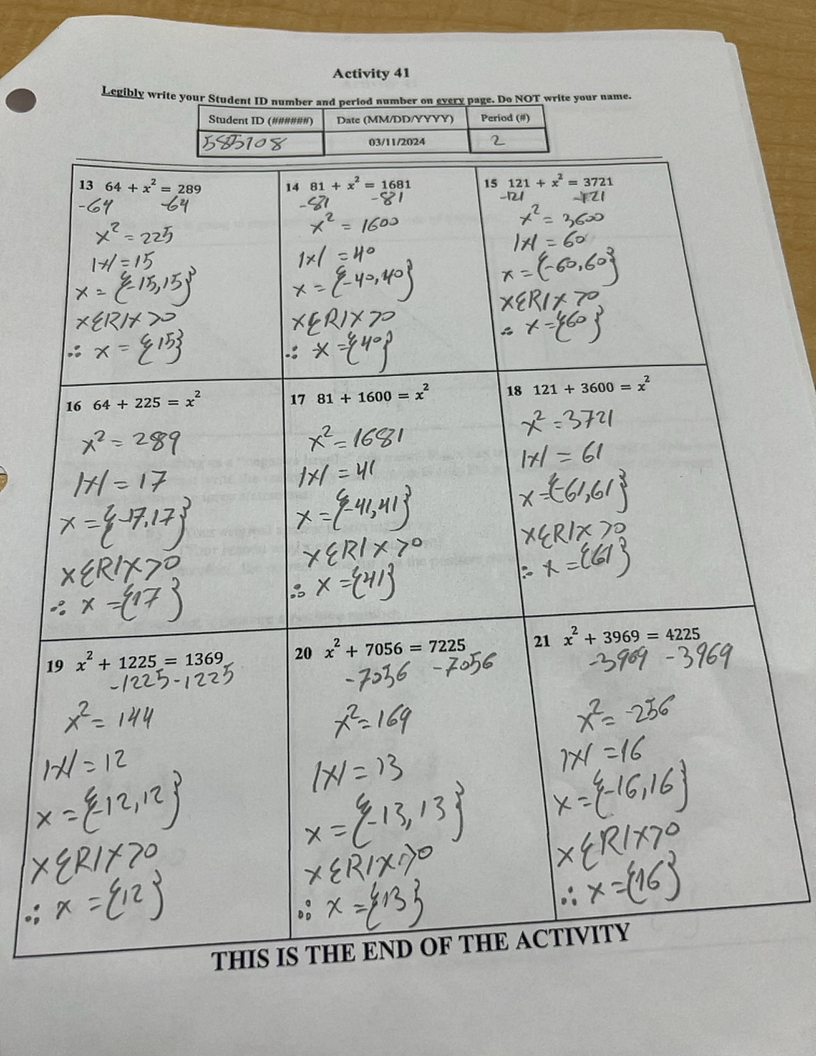 Activity 41
Legibly write your Student ID number and period number on every page. Do NOT write your name.
Student ID (######) Date (MM/DD/YYYY) Period (#)
585708 03/11/2024 2
13 64 + x² = 289
-64 -64
x² = 225
|x| = 15
x = {-15,15}
xεR|x>0
∴ x = {15}
14 81 + x² = 1681
-81 -81
x² = 1600
|x| = 40
x = {-40,40}
xεR|x>0
∴ x = {40}
15 121 + x² = 3721
-121 -121
x² = 3600
|x| = 60
x = {-60,60}
xεR|x>0
∴ x = {60}
16 64 + 225 = x²
x² = 289
|x| = 17
x = {-17,17}
xεR|x>0
∴ x = {17}
17 81 + 1600 = x²
x² = 1681
|x| = 41
x = {-41,41}
xεR|x>0
∴ x = {41}
18 121 + 3600 = x²
x² = 3721
|x| = 61
x = {-61,61}
xεR|x>0
∴ x = {61}
19 x² + 1225 = 1369
-1225 -1225
x² = 144
|x| = 12
x = {-12,12}
xεR|x>0
∴ x = {12}
20 x² + 7056 = 7225
-7056 -7056
x² = 169
|x| = 13
x = {-13,13}
xεR|x>0
∴ x = {13}
21 x² + 3969 = 4225
-3969 -3969
x² = -256
|x| = 16
x = {-16,16}
xεR|x>0
∴ x = {16}
THIS IS THE END OF THE ACTIVITY